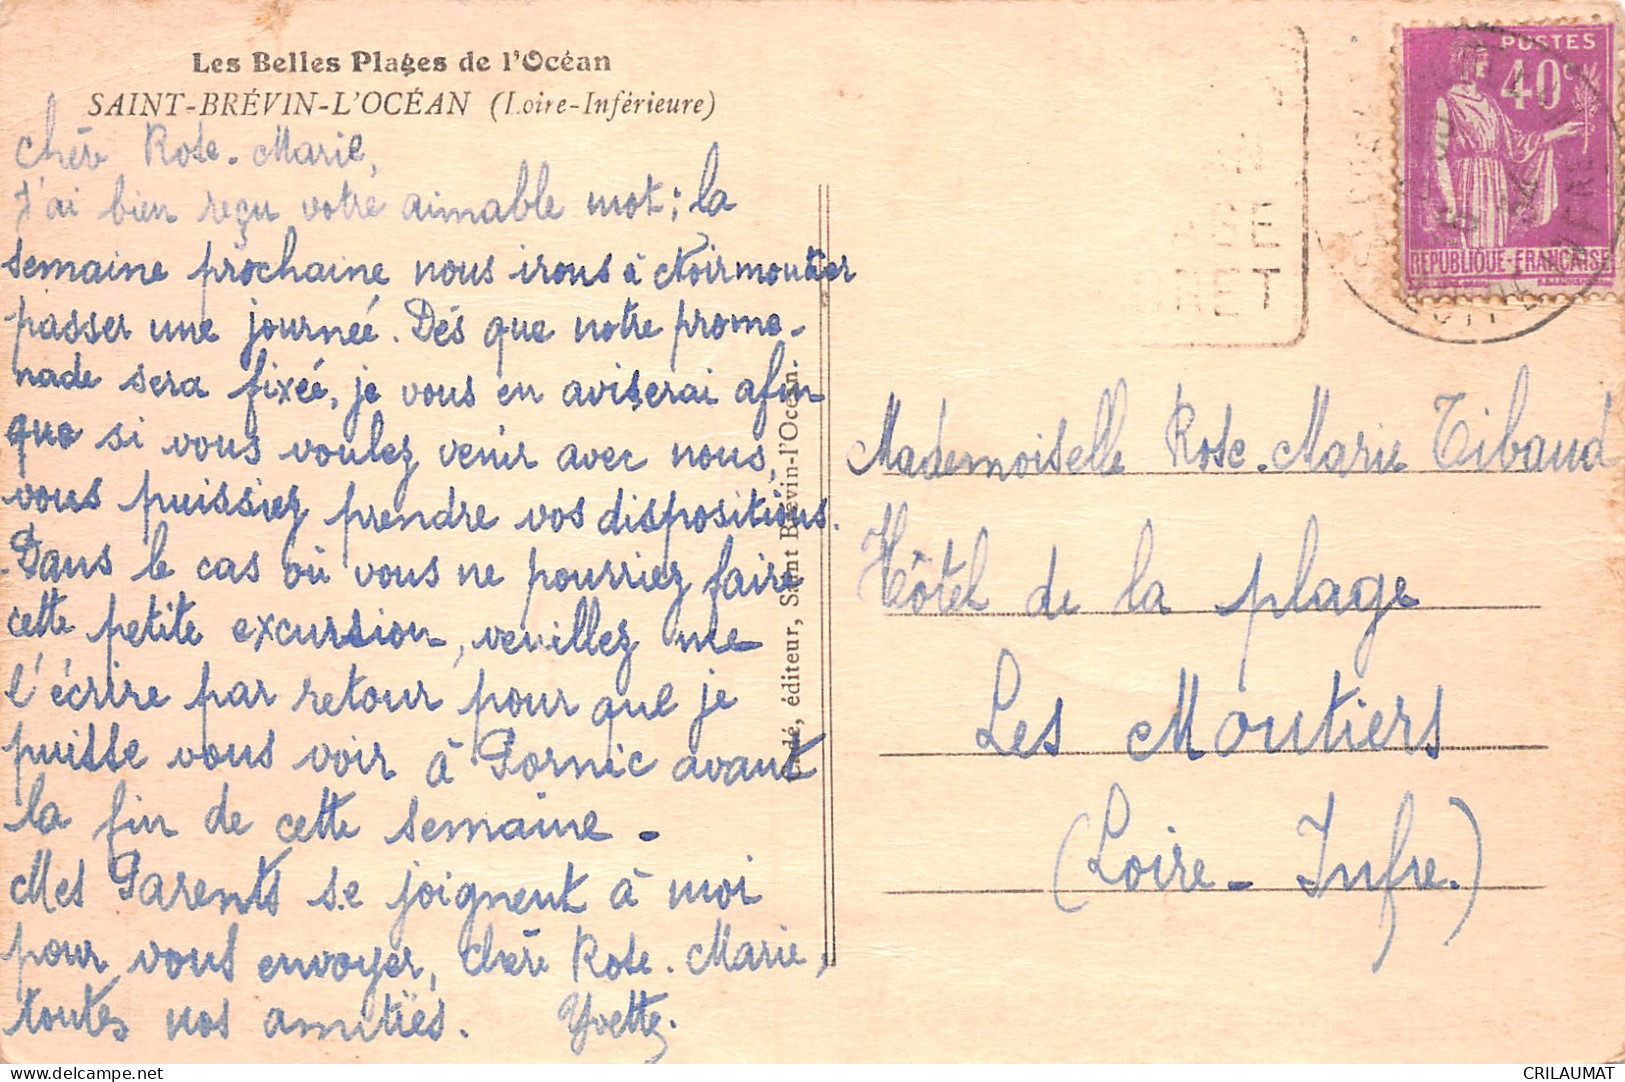 Les Belles Plages de l'Océan
SAINT-BRÉVIN-L'OCÉAN (Loire-Inférieure)
Chère Rose-Marie,
J'ai bien reçu votre aimable mot; la
semaine prochaine nous irons à Noirmoutier
passer une journée. Dès que notre prome-
nade sera fixée, je vous en aviserai afin
que si vous voulez venir avec nous,
vous puissiez prendre vos dispositions.
Dans le cas où vous ne pourriez faire
cette petite excursion, veuillez me
l'écrire par retour pour que je
puisse vous voir à Pornic avant
la fin de cette semaine -
Mes Parents se joignent à moi
pour vous envoyer, chère Rose-Marie,
toutes nos amitiés. Yvette.
éditeur, Saint Brévin-l'Océan.
POSTES
40c
REPUBLIQUE-FRANÇAISE
Mademoiselle Rose-Marie Tibaud
Hôtel de la plage
Les Moutiers
(Loire-Infre.)
CRILAUMAT